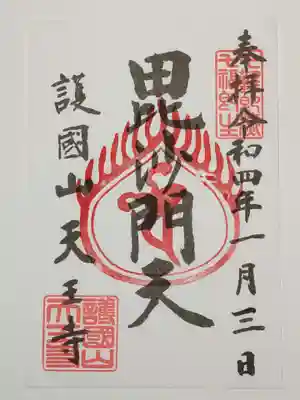 奉拝令和四年一月三日
毘沙門天
護國山天王寺
護國山